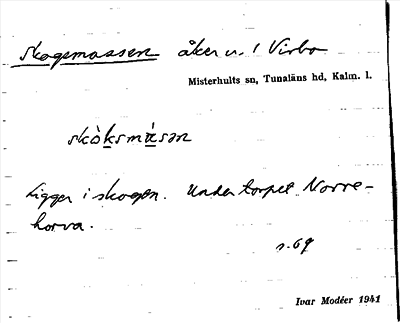 Skogsmossen åker u. / Virbo
Misterhults sn, Tunaläns hd, Kalm. l.
skòksmåsən
Ligger i skogen. Under torpet Norre-
horva.
s. 69
Ivar Modéer 1941